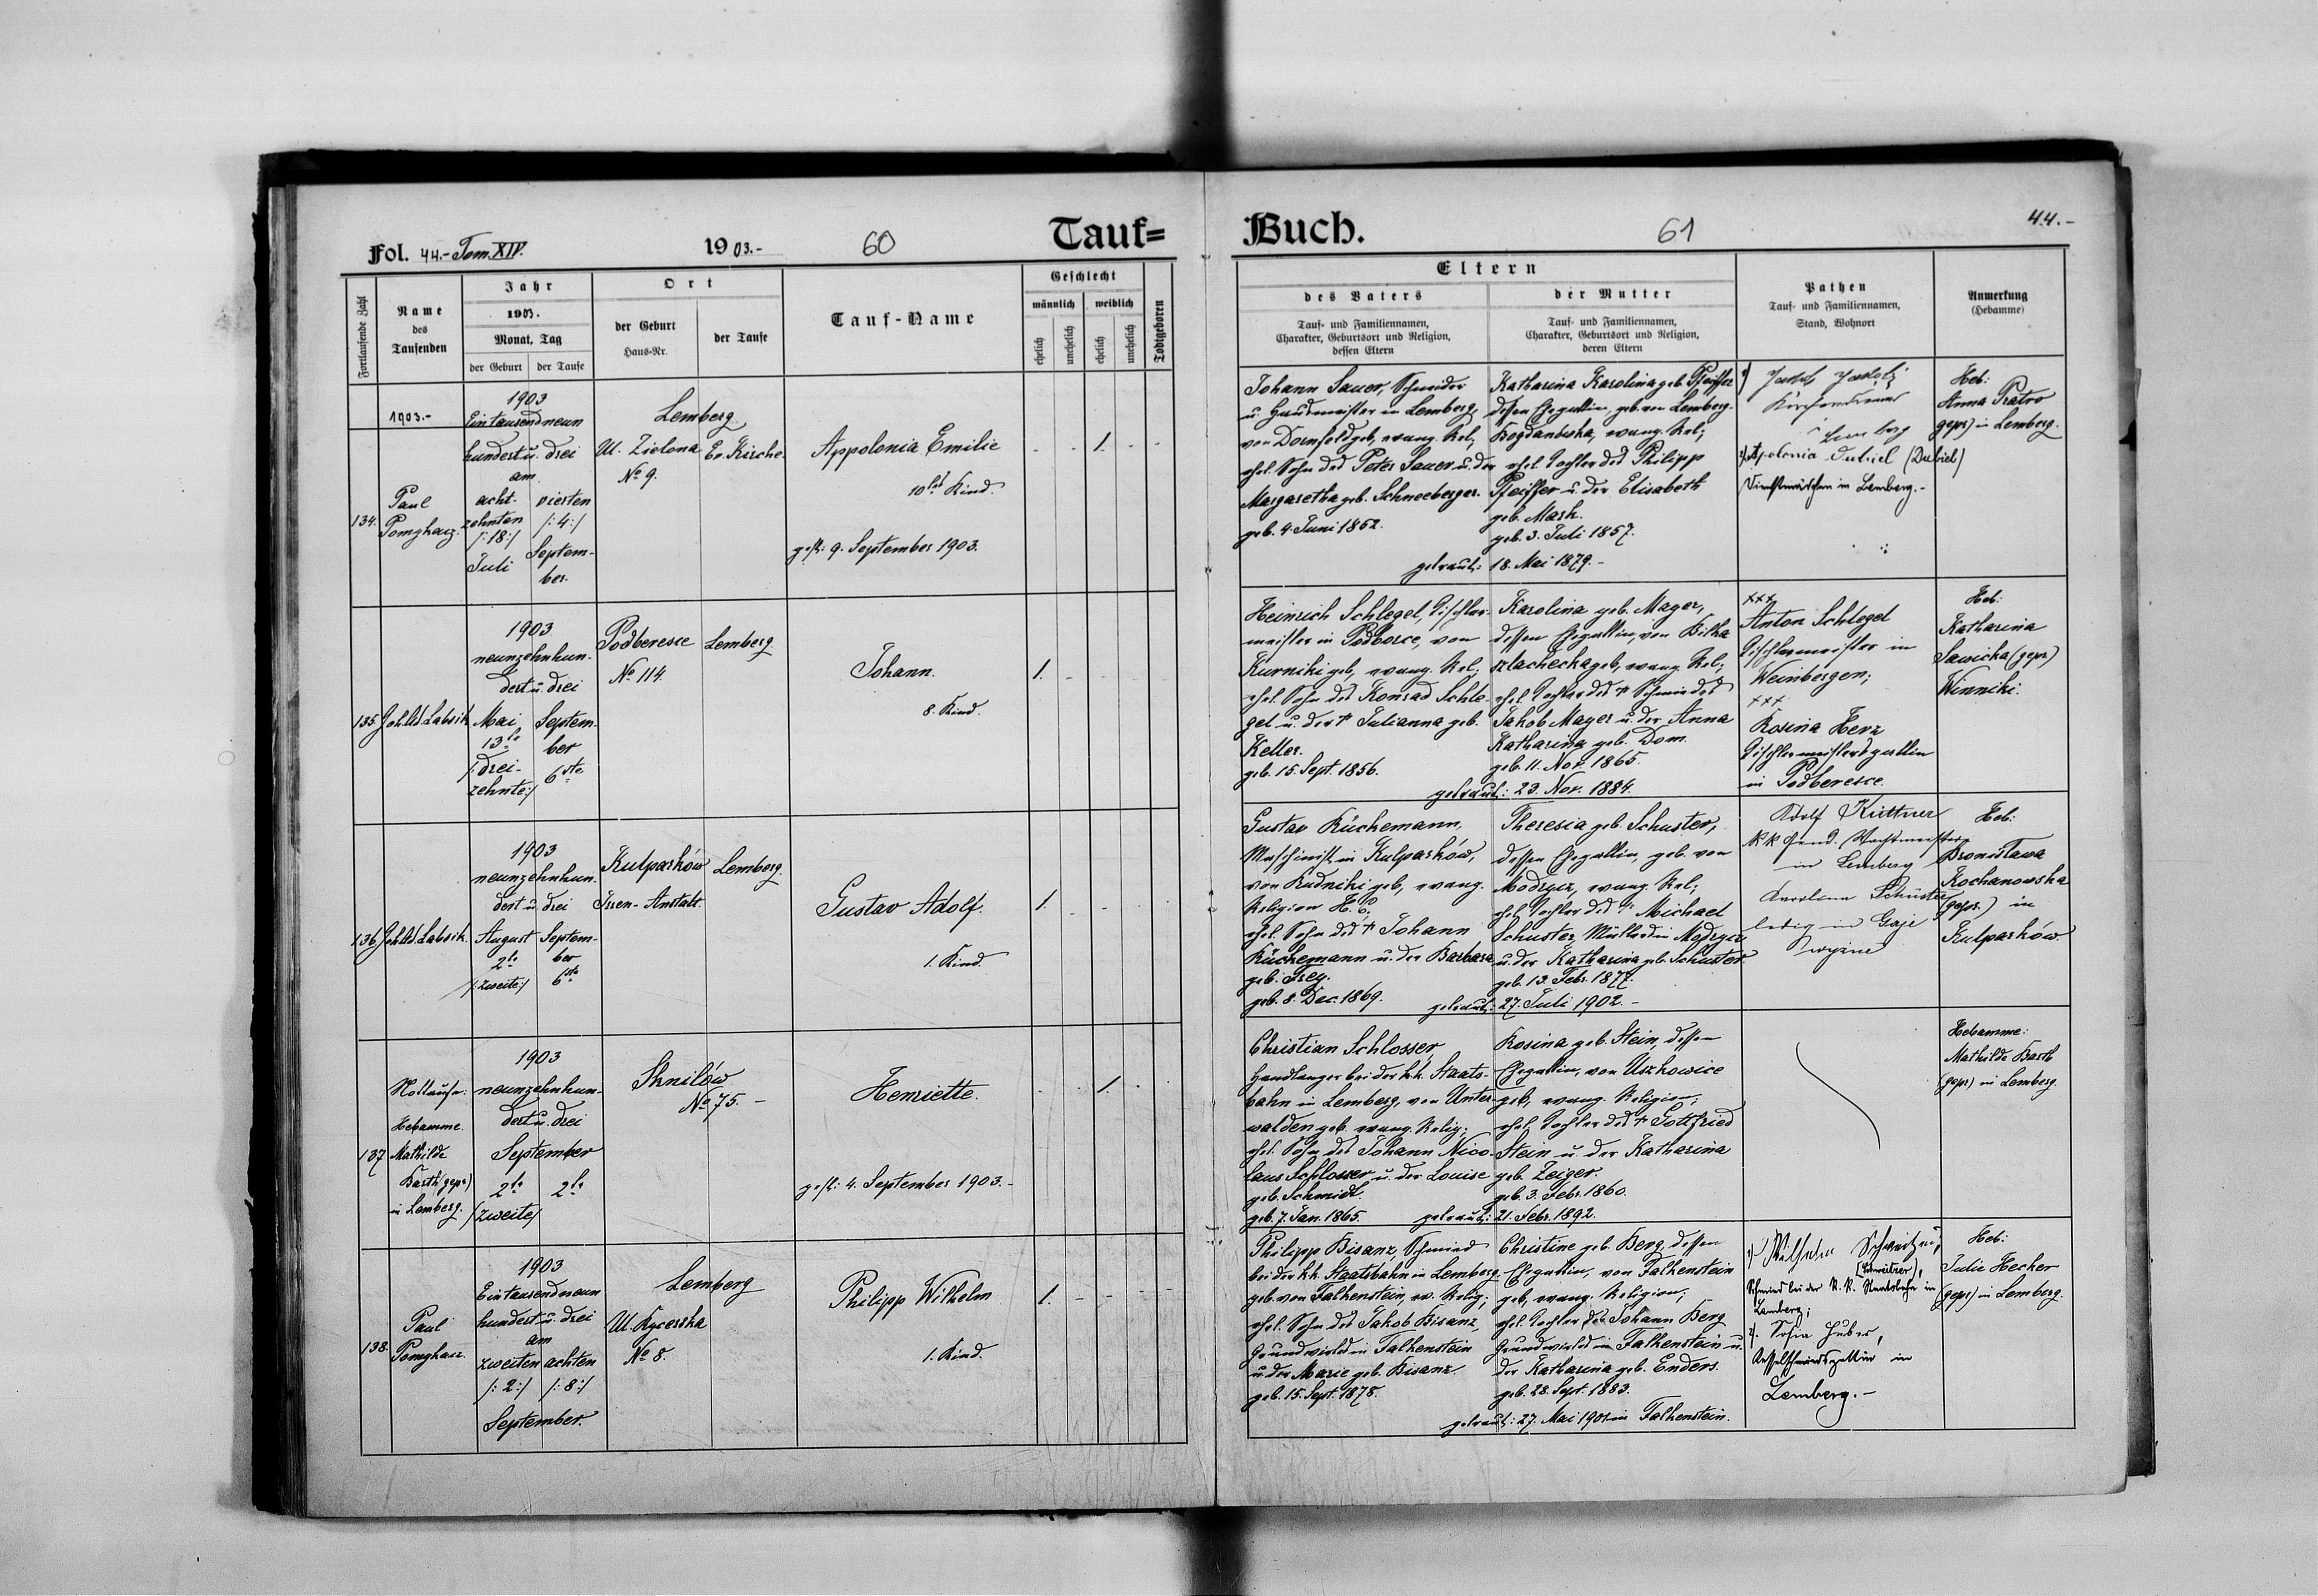 Fol. 44.- Tom. XIV.
1903.-
60
Tauf=
Fortlaufende Zahl
Name
des
Taufenden
Jahr
1903.
Monat, Tag
der Geburt
der Taufe
Ort
der Geburt
Haus-Nr.
der Taufe
Tauf-Name
Geschlecht
männlich
weiblich
ehelich
unehelich
ehelich
unehelich
Todtgeboren
1903.-
134.
Paul
1903
Eintausendneun
hundert u. drei
am
acht-
zehnten
/:18:/
Juli
vierten
/:4:/
Septem-
ber.
Lemberg
Ul. Zielona
No 9.
Ev. Kirche.
Appolonia Emilie
10tes Kind.
gest: 9. September 1903.
1.
135.
1903
neunzehnhun-
dert u. drei
Mai
13te
/:drei-
zehnte:/
Septem-
ber
6ste
Podberesce
No 114.
Lemberg.
Johann.
8. Kind.
1.
136.
1903
neunzehnhun-
dert u. drei
August
2te
/:zweite:/
Septem-
ber
6ste
Kulparków
Irren-Anstalt.
Lemberg.
Gustav Adolf.
1. Kind.
1.
137
Nottaufe.
Hebamme.
Mathilde
Barth (gepr.)
in Lemberg.
1903
neunzehnhun-
dert u. drei
September
2te
2te
/zweite/
Sknilów
No 75.-
Henriette.
gest: 4. September 1903.-
1.
138.
Paul
1903
Eintausendneun
hundert u. drei
am
zweiten achten
/:2:/ /:8:/
September.
Lemberg
Ul. Kycerska
No 8.
Philipp Wilhelm
1. Kind.
1.
Buch.
61
44.-
Eltern
des Vaters
Tauf- und Familiennamen,
Charakter, Geburtsort und Religion,
dessen Eltern
der Mutter
Tauf- und Familiennamen,
Charakter, Geburtsort und Religion,
deren Eltern
Pathen
Tauf- und Familiennamen,
Stand, Wohnort
Anmerkung
(Hebamme)
Johann Sauer, Schneider
u. Hausmeister in Lemberg,
von Dornfeld geb, evang. Rel;
ehel. Sohn des Peter Sauer u. der
Margaretha geb. Schneeberger.
geb. 4. Juni 1852.
Katharina Karolina geb. Pfeiffer
dessen Ehegattin, geb. von Lemberg-
Bogdanówka, evang. Rel;
ehel. Tochter des Philipp
Pfeiffer u. der Elisabeth
geb. Mark.
geb. 3. Juli 1857.
getraut: 18. Mai 1879.-
Lemberg
Apolonia Dubiel (Dubiel)
Dienstmädchen in Lemberg.-
Heb:
Anna Pratro
(gepr) in Lemberg.
Heinrich Schlegel, Tischler-
meister in Podborce, von
Kurniki geb, evang. Rel;
ehel. Sohn des Konrad Schle-
gel u. der + Julianna geb.
Keller.
geb. 15. Sept. 1856.
Karolina geb. Mayer,
dessen Ehegattin, von Bilka
szlachecka geb, evang. Rel;
ehel. Tochter des + Schmiedes
Jakob Mayer u. der Anna
Katharina geb. Dom.
geb. 11. Nov. 1865.
getraut: 23. Nov. 1884.
+++
Anton Schlegel
Tischlermeister in
Weinbergen;
+++
Rosina Herz
Tischlermeistersgattin
in Podberesce.
Heb:
Katharina
Sawicka (gepr)
Winniki.
Gustav Küchemann,
Maschinist in Kulparków,
von Rudniki geb, evang.
Religion H. C;
ehel. Sohn des + Johann
Küchemann u. der Barbara
geb. Frey.
geb. 8. Dec. 1869.
Theresia geb. Schuster,
dessen Ehegattin, geb. von
Modrycz, evang. Rel;
ehel. Tochter des + Michael
Schuster, Müllers in Modrycz
u. der Katharina geb. Schuster.
geb. 13. Febr. 1877.
getraut: 27. Juli 1902.-
Adolf Küttner
K. K. Gend. Wachtmeister
in Lemberg
Karolina Schuster
ledig in Gaje
Heb:
Bronisława
Kochanowska
(gepr.) in
Kulparków.
Christian Schlosser,
Handlanger bei der k.k. Staats-
bahn in Lemberg, von Unter-
walden geb. evang. Relig;
ehel. Sohn des Johann Nico-
laus Schlosser u. der Louise
geb. Schmidt.
geb. 7. Jan. 1865.
Rosina geb. Stein, dessen
Ehegattin, von Uszkowice
geb, evang. Religion;
ehel. Tochter des + Gottfried
Stein u. der Katharina
geb. Zeiger.
geb. 3. Febr. 1860.
getraut: 21. Febr. 1892.
Hebamme:
Mathilde Barth
(gepr) in Lemberg.
Philipp Bisanz, Schmied
bei der k.k. Staatsbahn in Lemberg
geb. von Falkenstein, ev. Relig;
ehel. Sohn des Jakob Bisanz,
Grundwirtes in Falkenstein
u. der Marie geb. Bisanz.
geb. 15. Sept. 1878.
Christine geb. Berg, dessen
Ehegattin, von Falkenstein
geb, evang. Religion;
ehel. Tochter des Johann Berg
Grundwirtes in Falkenstein u.
der Katharina geb. Enders.
geb. 28. Sept. 1883.
getraut: 27. Mai 1901 in Falkenstein.
1) Wilhelm Schweitzer,
(Schweitzer),
Schmied bei der K. K. Staatsbahn in
Lemberg;
2. Sofia Huber,
Kesselschmiedsgattin in
Lemberg.-
Heb:
Julie Hecker
(gepr) in Lemberg.